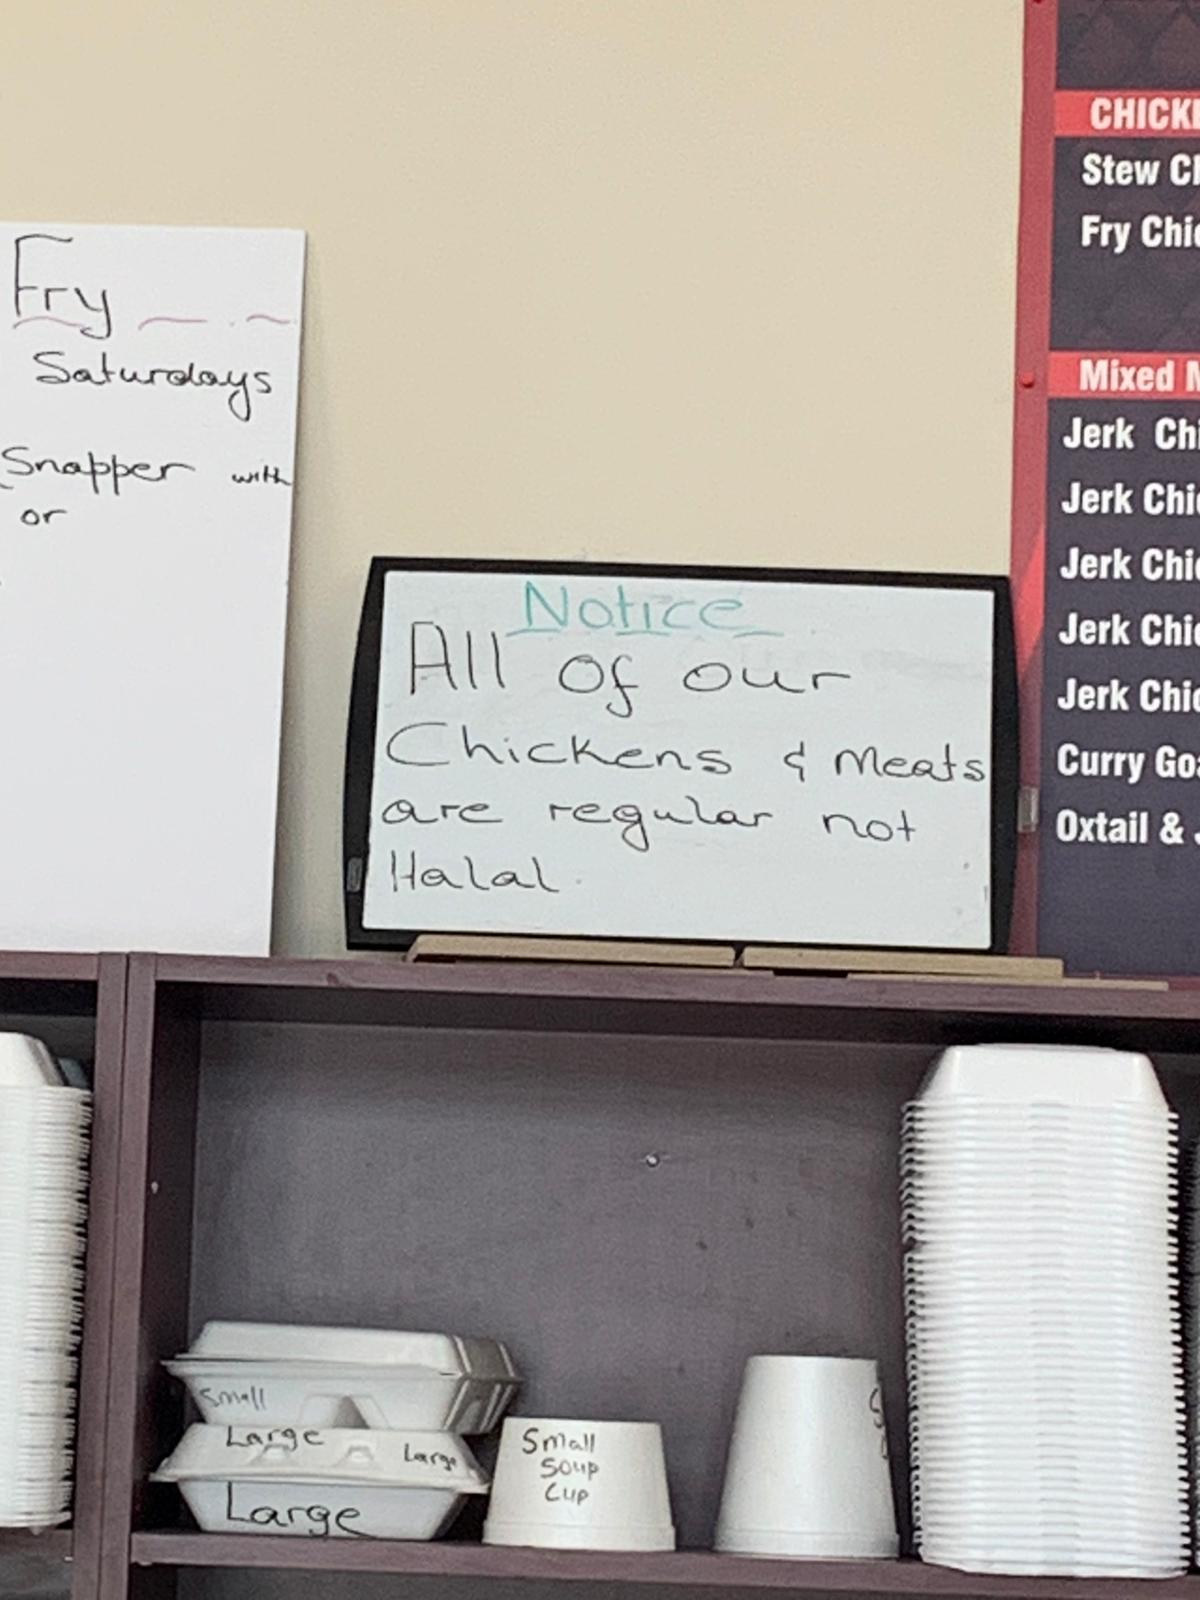 Fry
Saturdays
Snapper with
or
Notice
All of our
Chickens & Meats
are regular not
Halal
Stew
Fry
Mixed
Jerk
Jerk
Jerk
Jerk
Jerk
Curry
Oxtail &
Small
Large Large
Large
Small
Soup
Cup